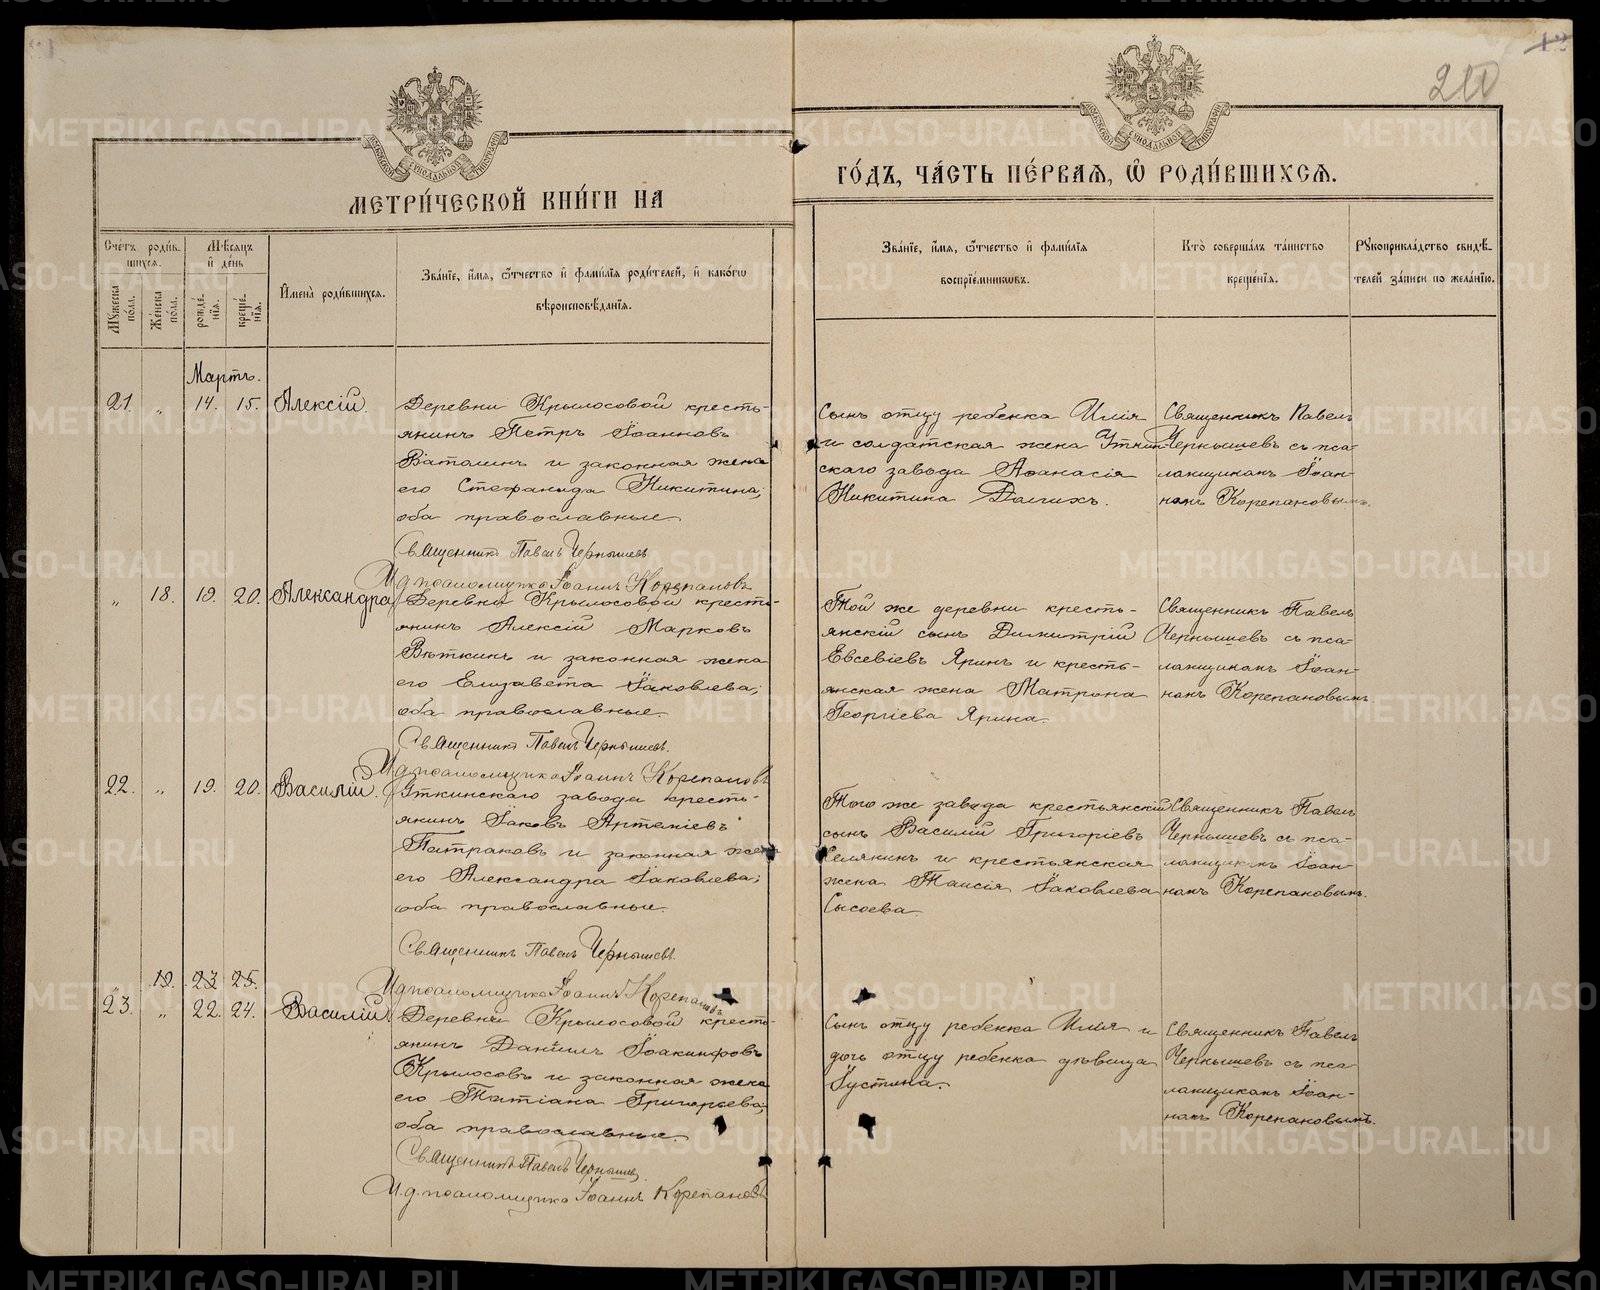 МЕТРИ́ЧЕСКОЙ КНИ́ГИ НА
ГО́ДЪ, ЧА́СТЬ ПЕ́РВАѦ, Ѡ҆ РОДИ́ВШИХСѦ.
Сче́тъ роди́в-
шихсѧ.
Мѣ́сѧцъ
и҆ де́нь
Му́жеска по́ла.
Же́нска по́ла.
рожде́-
нїѧ.
креще́-
нїѧ.
И҆мена̀ роди́вшихсѧ.
Зва́нїе, и҆́мѧ, ѻ҆́тчество и҆ фами́лїѧ роди́телей, и҆ како́гѡ
вѣроисповѣ́данїѧ.
Зва́нїе, и҆́мѧ, ѻ҆́тчество и҆ фами́лїѧ
воспрїе́мникѡвъ.
Кто̀ соверша́лъ та́инство
креще́нїѧ.
Рꙋкоприкла́дство свидѣ́-
телей за́писи по жела́нїю.
Мартъ.
21. „ 14. 15. Алексій.
Деревни Крылосовой кресть-
янинъ Петръ Іоанновъ
Ваталинъ и законная жена
его Стефанида Никитина;
оба православные
Священникъ Павелъ Чернышевъ
И д псаломщика Іоаннъ Корепановъ
Сынъ отцу ребенка Илія
и солдатская жена Уткин-
скаго завода Афанасія
Никитина Долгихъ.
Священникъ Павелъ
Чернышевъ съ пса-
ломщикомъ Іоан-
номъ Корепановымъ.
„ 18. 19. 20. Александра
Деревни Крылосовой кресть-
янинъ Алексій Марковъ
Вяткинъ и законная жена
его Елизавета Іаковлева;
оба православные.
Священникъ Павелъ Чернышевъ.
И д псаломщика Іоаннъ Корепановъ
Той же деревни кресть-
янскій сынъ Димитрій
Евсевіевъ Яринъ и кресть-
янская жена Матрона
Георгіева Ярина.
Священникъ Павелъ
Чернышевъ съ пса-
ломщикомъ Іоан-
номъ Корепановымъ
22. „ 19. 20. Василій.
Уткинскаго завода кресть-
янинъ Іаковъ Артеміевъ
Патраковъ и законная жена
его Александра Іаковлева;
оба православные.
Священникъ Павелъ Чернышевъ.
И д псаломщика Іоаннъ Корепановъ
Того же завода крестьянскій
сынъ Василій Григоріевъ
и крестьянская
жена Таисія Іаковлева
Сысоева.
Священникъ Павелъ
Чернышевъ съ пса-
ломщикомъ Іоан-
номъ Корепановымъ.
19. 23 25.
23. „ 22. 24. Василій.
Деревни Крылосовой кресть-
янинъ Даніилъ Іоакинфовъ
Крылосовъ и законная жена
его Татіана Григорьева;
оба православные.
Священникъ Павелъ Чернышевъ
И. д. псаломщика Іоаннъ Корепановъ
Сынъ отцу ребенка Илія и
дочь отцу ребенка дѣвица
Іустина.
Священникъ Павелъ
Чернышевъ съ пса-
ломщикомъ Іоан-
номъ Корепановымъ.
METRIKI.GASO-URAL.RU